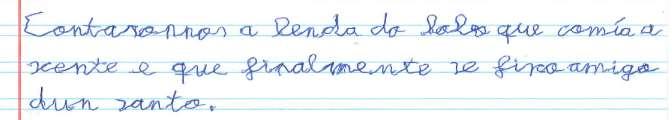 Contaronnos a lenda do lobo que comía a
xente e que finalmente se fixo amigo
dun santo.